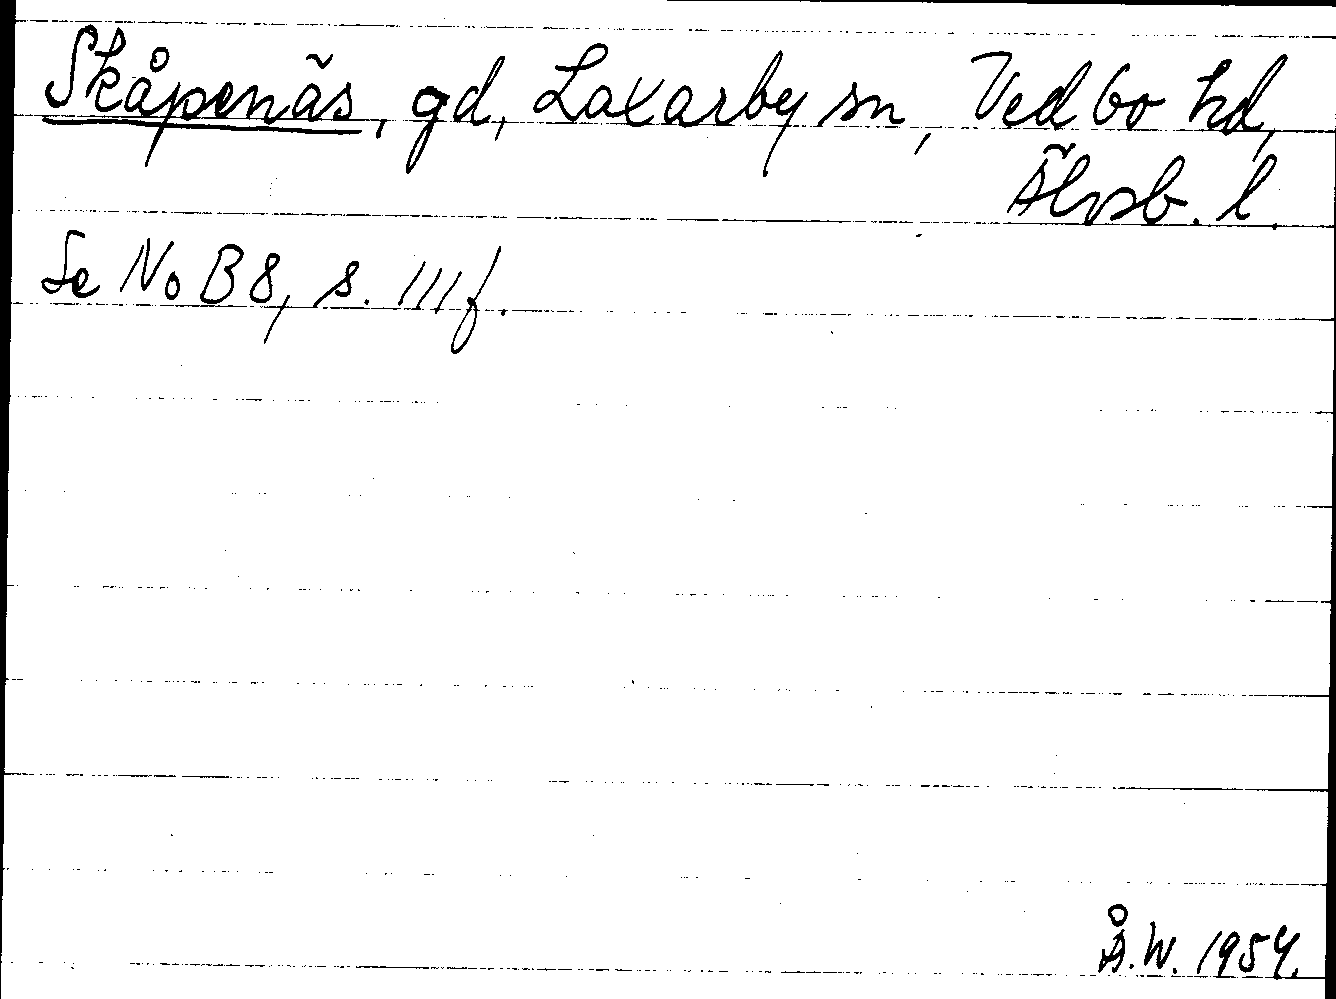 Skåpenäs, gd, Laxarby sn, Vedbo hd,
Älvsb. l.
Se NoB 8, s. 111 f.
Å.W. 1954.